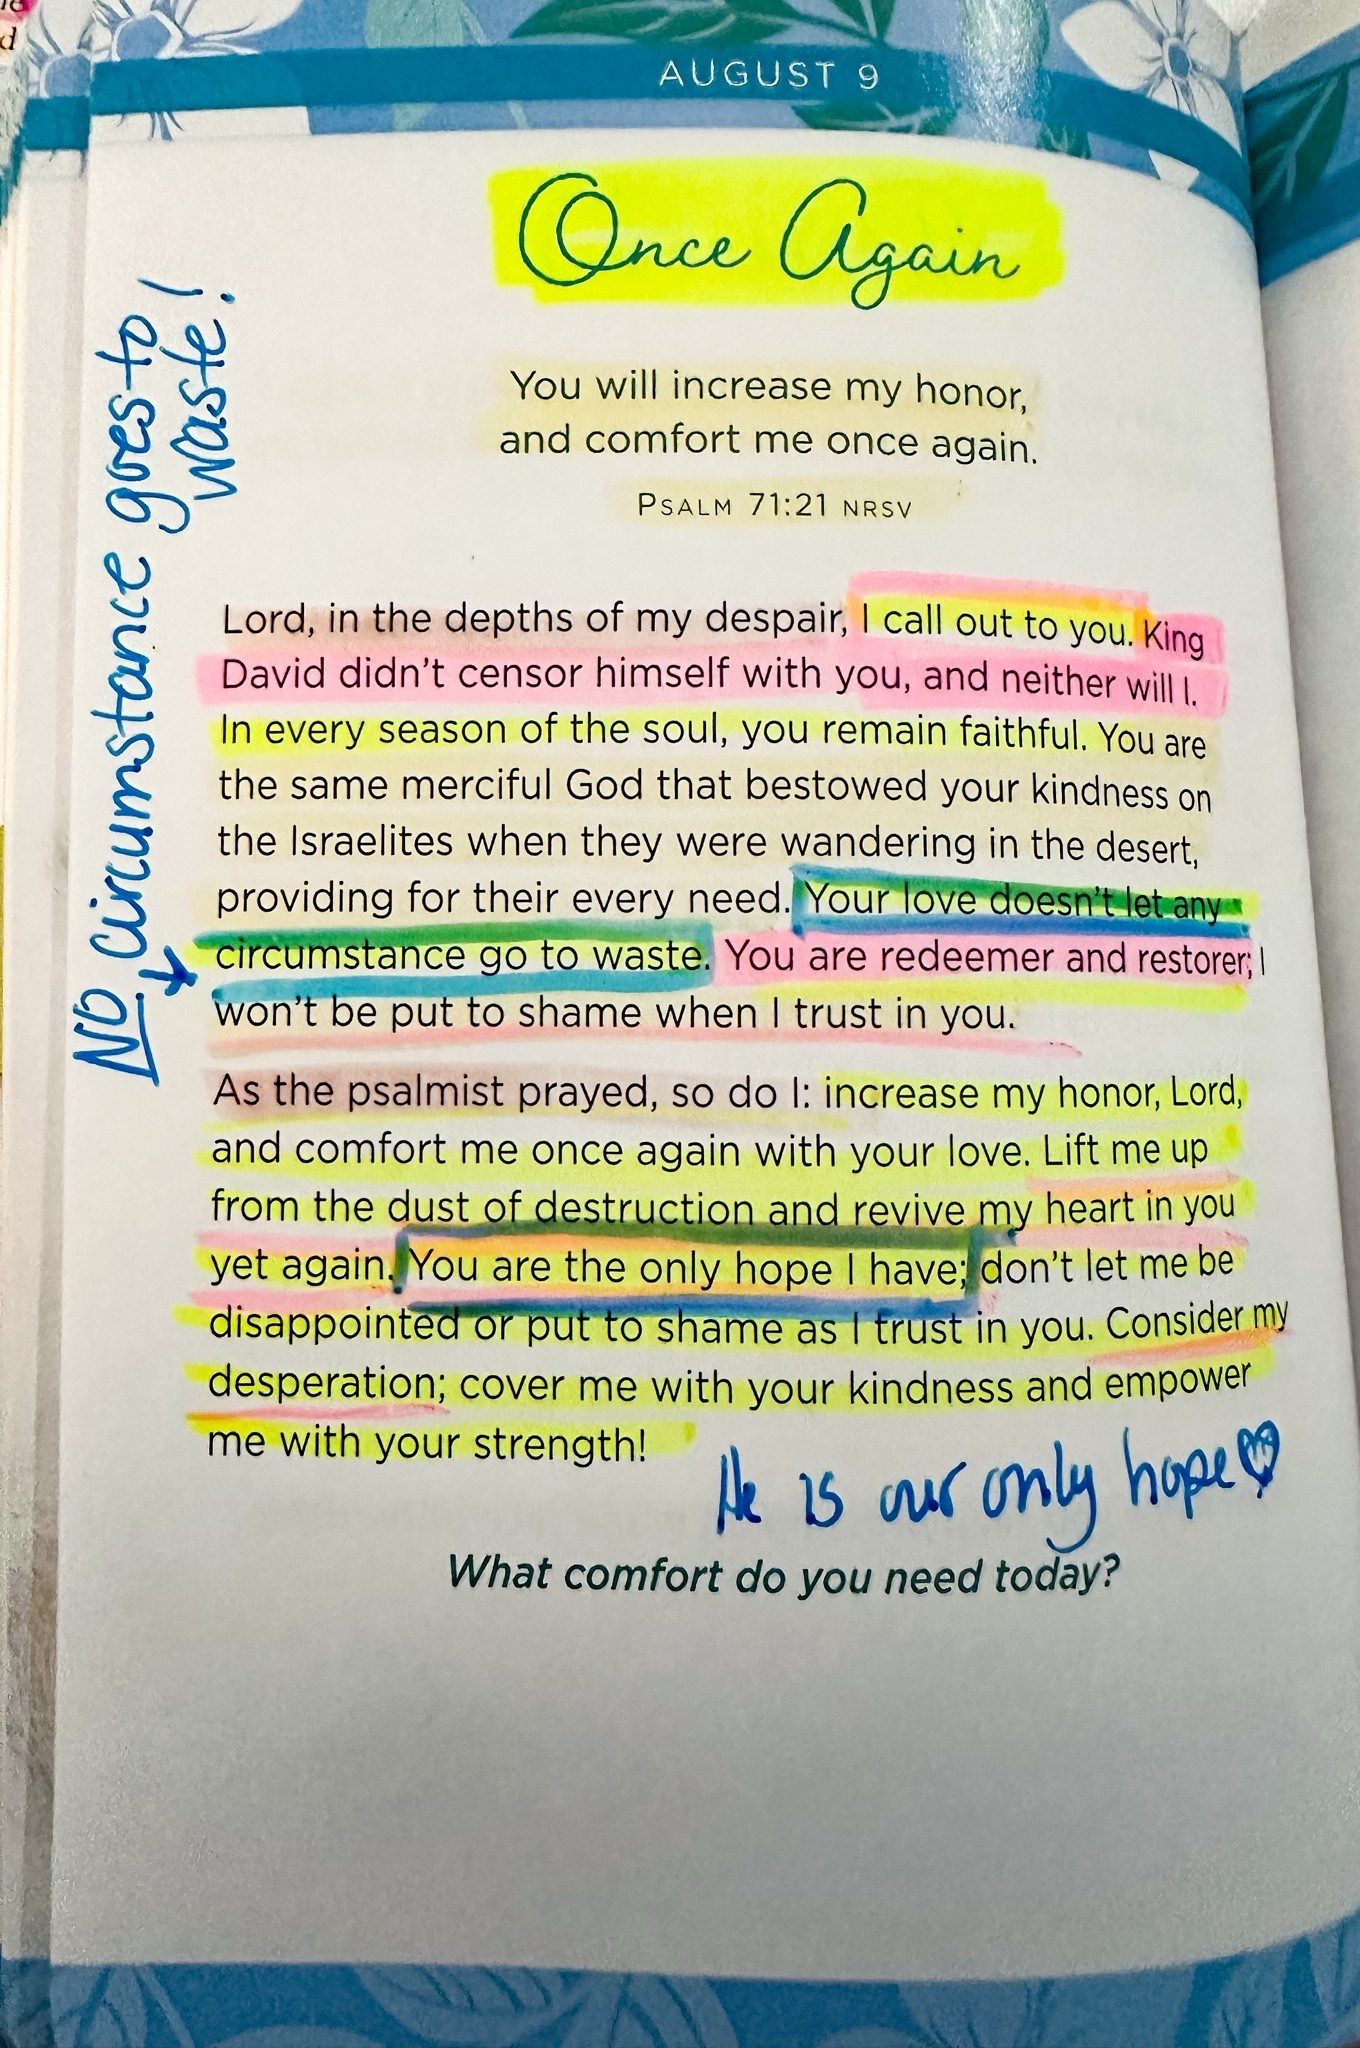 AUGUST 9
Once Again
You will increase my honor,
and comfort me once again.
PSALM 71:21 NRSV
Lord, in the depths of my despair, I call out to you. King
David didn't censor himself with you, and neither will I.
In every season of the soul, you remain faithful. You are
the same merciful God that bestowed your kindness on
the Israelites when they were wandering in the desert,
providing for their every need. Your love doesn't let any
circumstance go to waste. You are redeemer and restorer; I
won't be put to shame when I trust in you.
As the psalmist prayed, so do I: increase my honor, Lord,
and comfort me once again with your love. Lift me up
from the dust of destruction and revive my heart in you
yet again. You are the only hope I have; don't let me be
disappointed or put to shame as I trust in you. Consider my
desperation; cover me with your kindness and empower
me with your strength!
He is our only hope
What comfort do you need today?
NO circumstance goes to
waste!